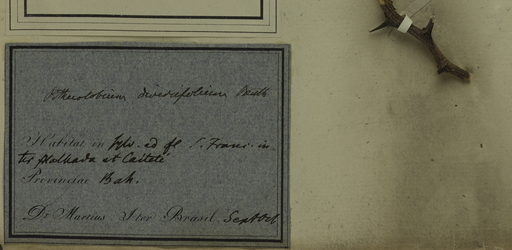 Pithecolobium diversifolium Benth
Habitat in sylv. ad fl. S. Franc. in-
ter Malhada et Caiteté
Provinciae Bah.
Dr. Martius Iter Brasil. Sept Oct